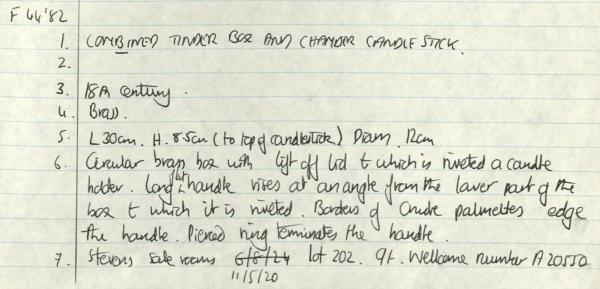 F 44'82
1. COMBINED TINDER BOX AND CHAMBER CANDLE STICK.
2.
3. 18th century.
4. Brass.
5. L 30cm. H. 8.5cm (to top of candlestick) Diam. 12cm
6. Circular brass box with lift off lid t which is riveted a candle
holder. Long flat handle rises at an angle from the lower part of the
box t which it is riveted. Borders of crude palmettes edge
the handle. Pierced ring terminates the handle.
7. Stevens Sale rooms 6/8/24 lot 202. 9/-. Wellcome number A 20550
11/5/20